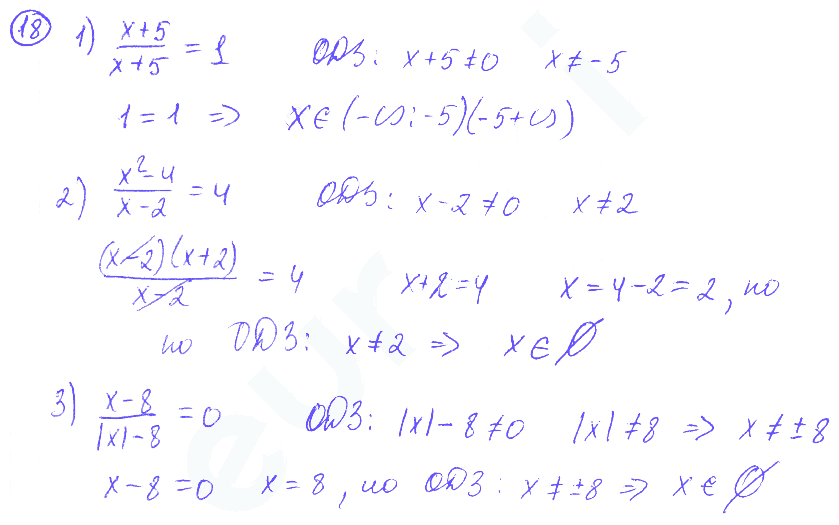 18 1) (x+5)/(x+5) = 1 ОДЗ: x+5≠0 x≠-5
1=1 => x∈(-∞;-5)(-5+∞)
2) (x²-4)/(x-2) = 4 ОДЗ: x-2≠0 x≠2
((x-2)(x+2))/(x-2) = 4 x+2=4 x=4-2=2, но
но ОДЗ: x≠2 => x∈∅
3) (x-8)/(|x|-8) = 0 ОДЗ: |x|-8≠0 |x|≠8 => x≠±8
x-8=0 x=8, но ОДЗ: x≠±8 => x∈∅